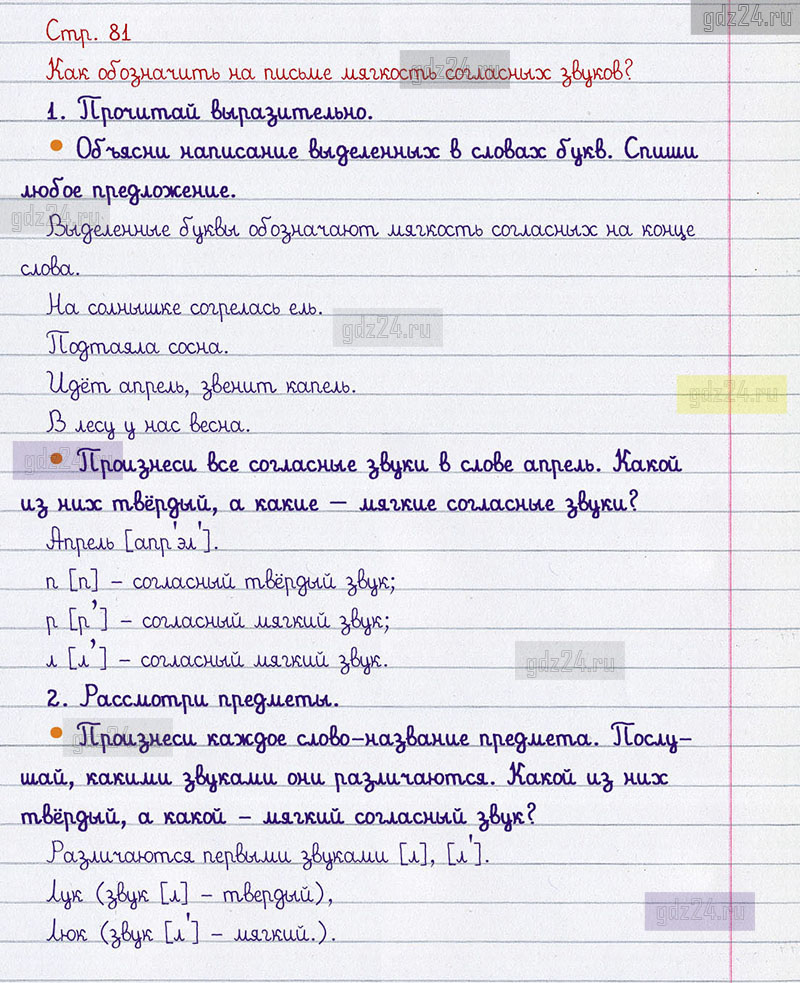 gdz24.ru
Стр. 81
Как обозначить на письме мягкость согласных звуков?
gdz24.ru
1. Прочитай выразительно.
• Объясни написание выделенных в словах букв. Спиши
любое предложение.
gdz24.ru
Выделенные буквы обозначают мягкость согласных на конце
слова.
На солнышке согрелась ель.
gdz24.ru
Подтаяла сосна.
Идёт апрель, звенит капель.
gdz24.ru
В лесу у нас весна.
gdz24.ru
• Произнеси все согласные звуки в слове апрель. Какой
из них твёрдый, а какие – мягкие согласные звуки?
Апрель [апр'эл'].
п [п] – согласный твёрдый звук;
р [р'] – согласный мягкий звук;
л [л'] – согласный мягкий звук.
gdz24.ru
2. Рассмотри предметы.
gdz24.ru
• Произнеси каждое слово-название предмета. Послу-
шай, какими звуками они различаются. Какой из них
твёрдый, а какой – мягкий согласный звук?
Различаются первыми звуками [л], [л'].
Лук (звук [л] – твердый),
gdz24.ru
Люк (звук [л'] – мягкий.).